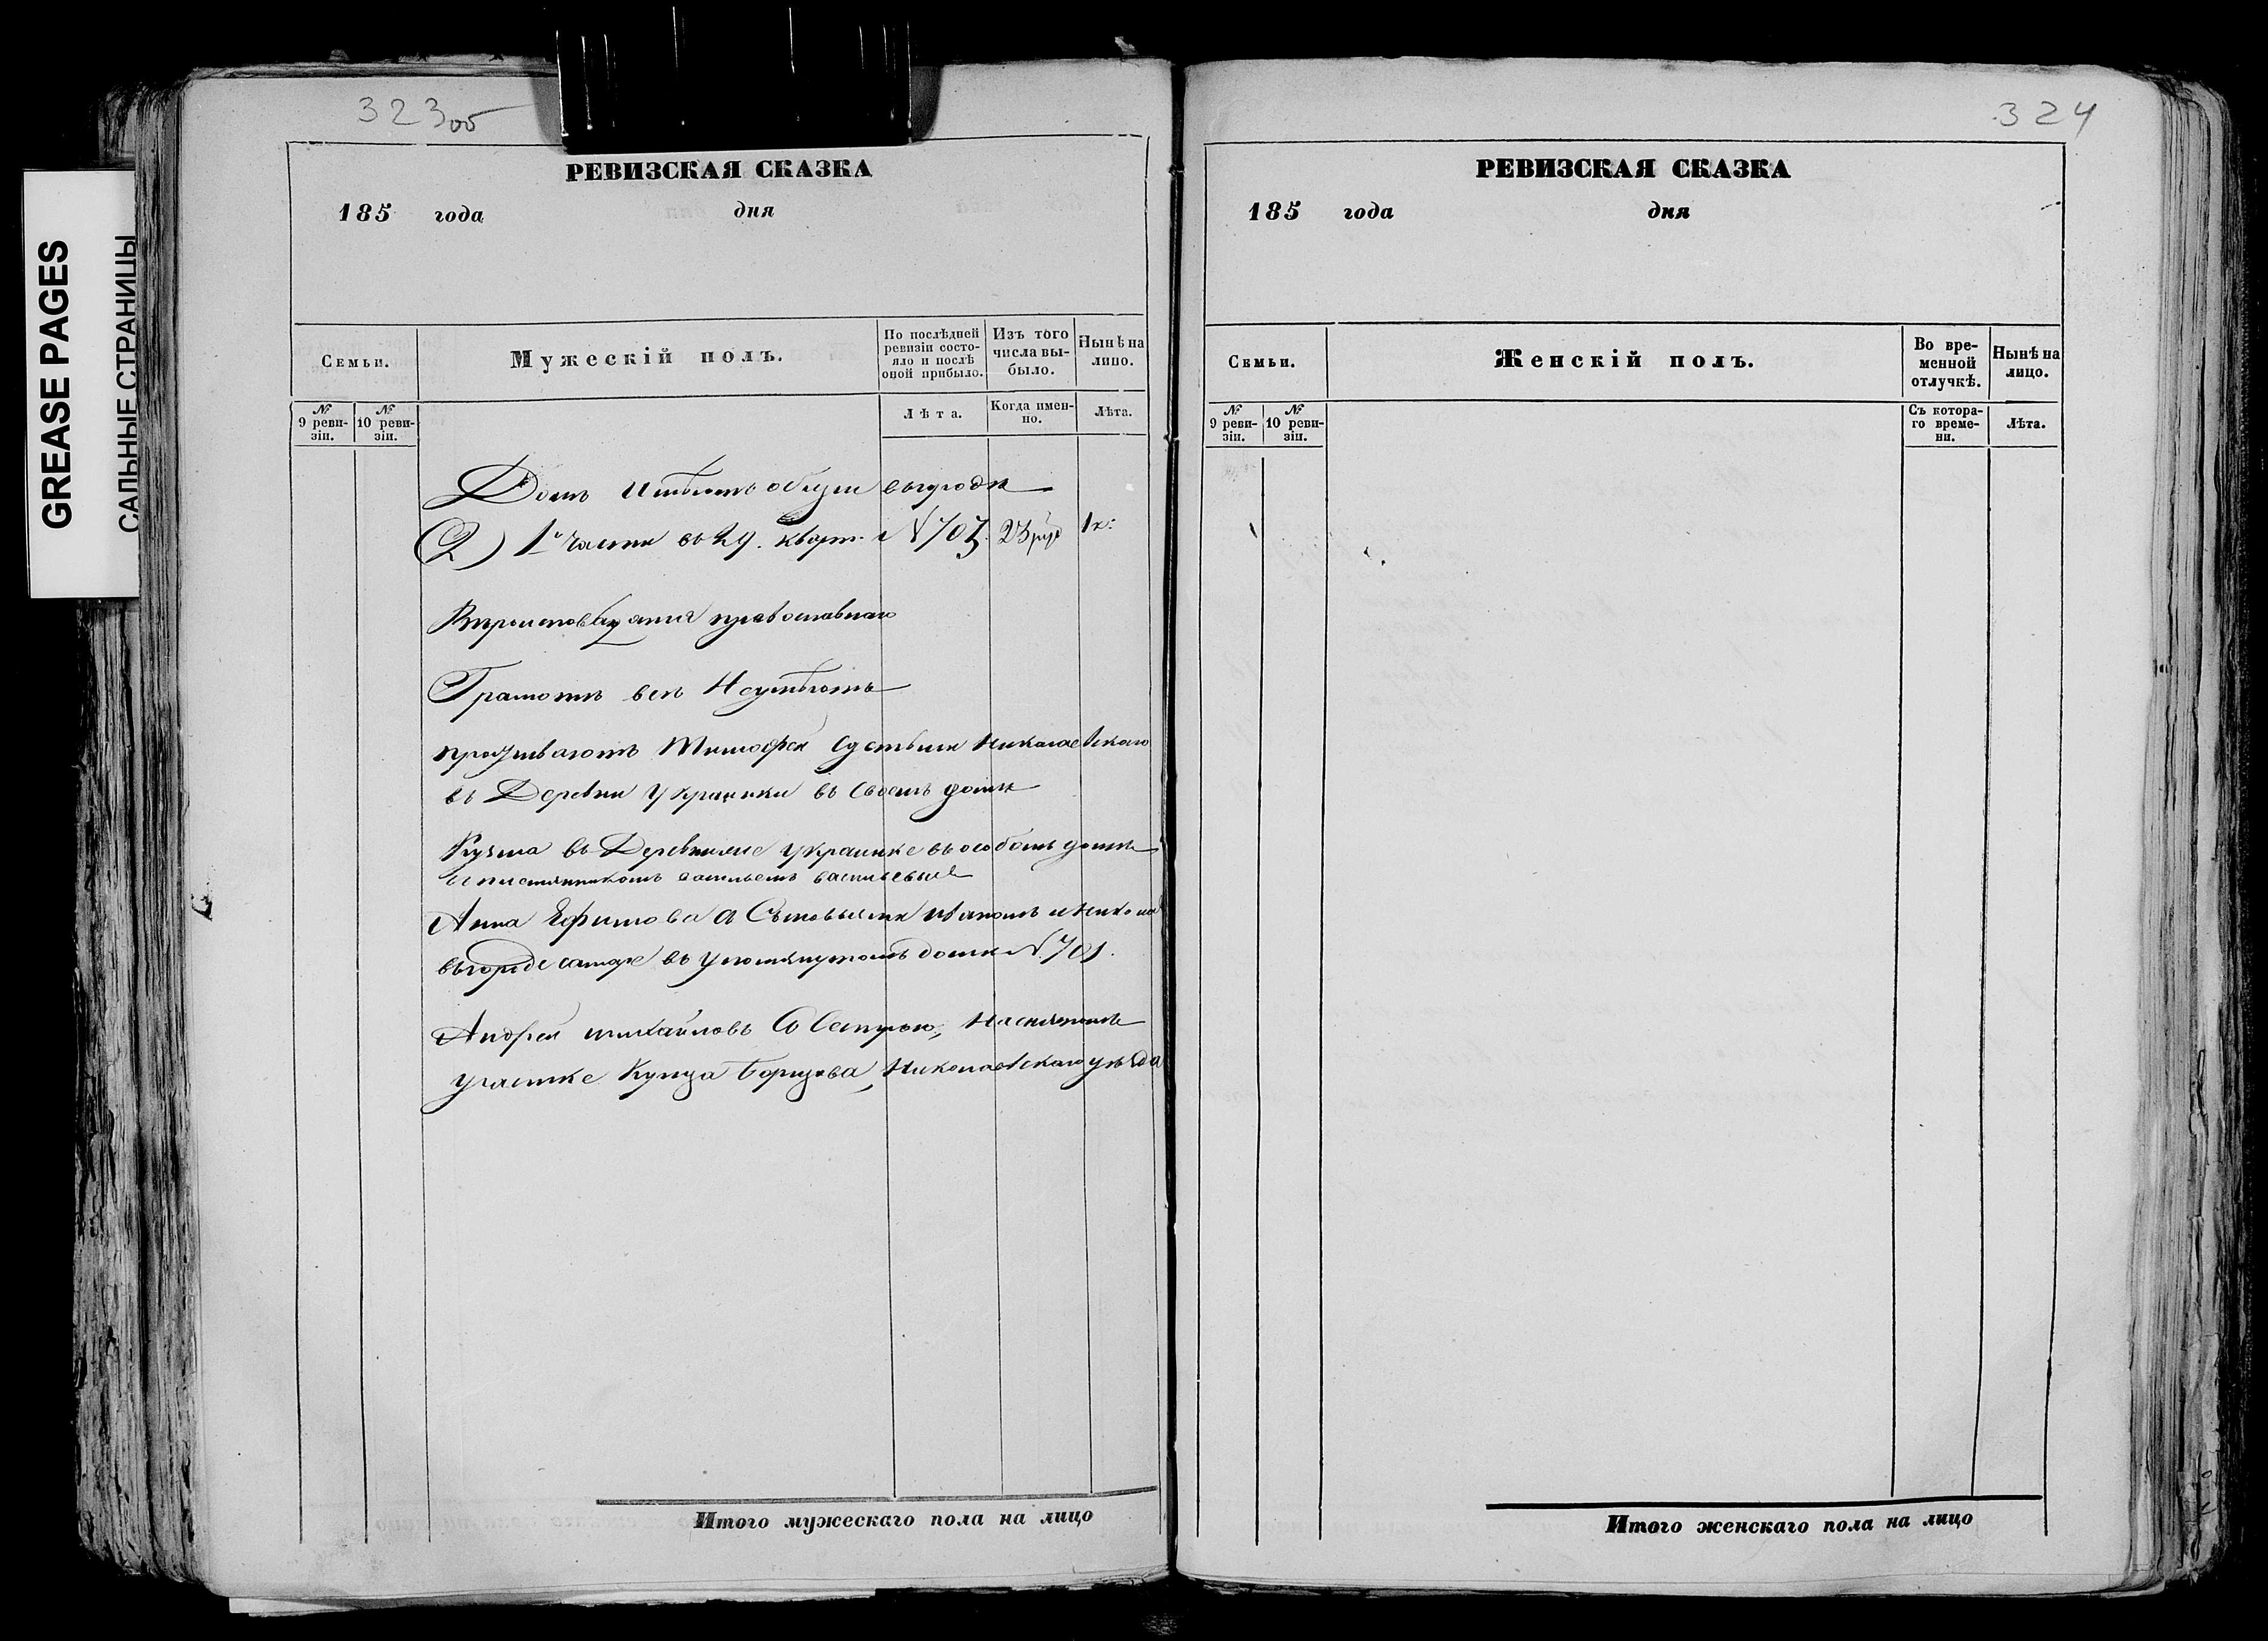 GREASE PAGES
САЛЬНЫЕ СТРАНИЦЫ
323об
РЕВИЗСКАЯ СКАЗКА
185 года дня
Семьи.
Мужескій полъ.
По послѣдней ревизіи состояло и послѣ оной прибыло.
Изъ того числа выбыло.
Нынѣ на лицо.
№ 9 ревизіи.
№ 10 ревизіи.
Лѣта.
Когда именно.
Лѣта.
Домъ имѣютъ общи въ городѣ
1й части въ 29. кварт. N 701. 23 руб 1к:
православнаго
Грамотѣ всѣ Неумѣютъ
проживаютъ Тимофей Николаевскаго
въ Деревни Украинки въ своемъ домѣ
Кузма въ Деревни Украинке въ особомъ доме
племянникомъ васильевы
Анна Ефимова съ Сыновьями Иваномъ и
въ городе самаре въ упомянутомъ доме N. 701.
Андрей михайловъ Со Сестрою, На
участке Купца Николаевскаго уѣзда
324
РЕВИЗСКАЯ СКАЗКА
185 года дня
Семьи.
Женскій полъ.
Во временной отлучкѣ.
Нынѣ на лицо.
№ 9 ревизіи.
№ 10 ревизіи.
Съ котораго времени.
Лѣта.
Итого мужескаго пола на лицо
Итого женскаго пола на лицо